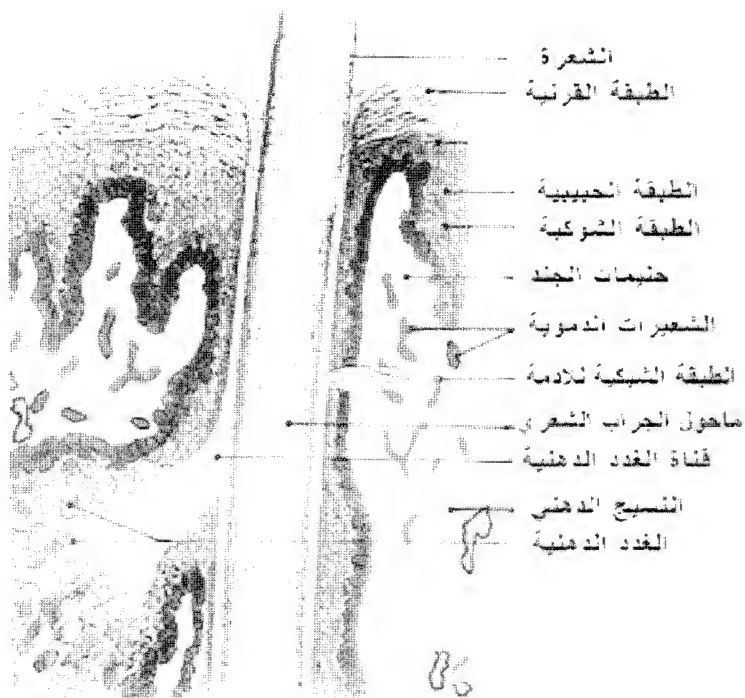 الشعرة
الطبقة القرنية
الطبقة الحبيبية
الطبقة الشوكية
حليمات الجلد
الشعيرات الدموية
الطبقة الشبكية للادمة
ماحول الجراب الشعري
قناة الغدد الدهنية
النسيج الدهني
الغدد الدهنية